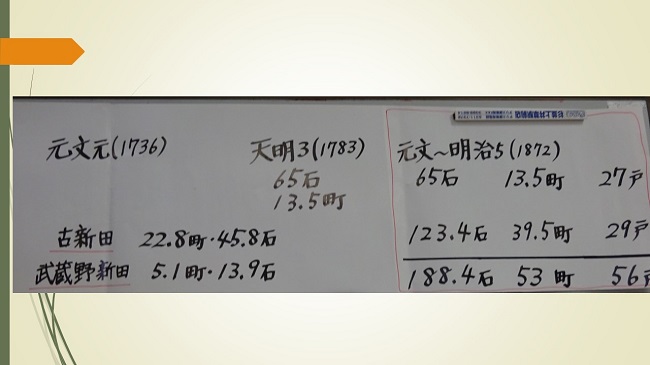 元文元(1736)
天明3(1783)
65石
13.5町
古新田 22.8町・45.8石
武蔵野新田 5.1町・13.9石
元文～明治5(1872)
65石 13.5町 27戸
123.4石 39.5町 29戸
188.4石 53町 56戸